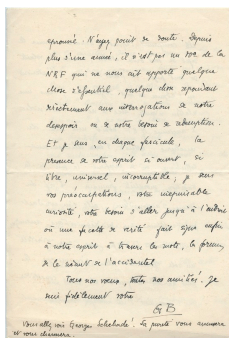 éprouvé. N'ayez point de doute. Depuis
plus d'une année, il n'est pas un no de la
NRF qui ne nous ait apporté quelque
chose d'essentiel, quelque chose répondant
directement aux interrogations de notre
désespoir ou de notre besoin de rédemption.
Et je sens, en chaque fascicule, la
présence de votre esprit si ouvert, si
libre, universel, incorruptible; je sens
vos préoccupations, votre inépuisable
curiosité, votre besoin d'aller jusqu'à l'endroit
où une facette de vérité fait signe enfin
à notre esprit à travers les mots, la forme,
et le néant de l'accidentel.
Tous nos vœux, toutes nos amitiés. Je
suis fidèlement votre
GB
Vous allez voir Georges Schehadé. La pureté vous
et vous charmera.